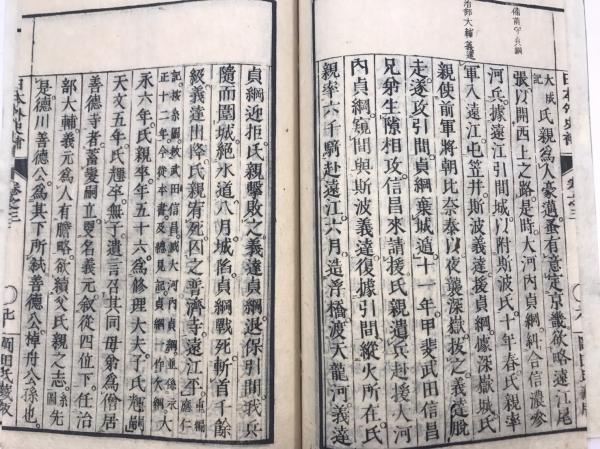 備前守貞綱
治部大輔義達
日本外史補 卷之三 〇六
大成記氏親爲人豪邁蚤有意定京畿欲略遠江尾
張以開西上之路是時大河內貞綱糾合信濃參
河兵據遠江引間城以附斯波氏十年春氏親率
軍入遠江屯笠井斯波義達援貞綱據深嶽城氏
親使前軍將朝比奈泰以夜襲深嶽拔之義達脫
走遂攻引間貞綱棄城遁十一年甲斐武田信昌
兄弟生隙相攻信昌來請援氏親遣兵赴援大河
內貞綱窺間與斯波義達復據引間縱火所在氏
親率六千騎赴遠江六月造浮橋渡天龍河義達
貞綱迎拒氏親擊敗之義達貞綱退保引間我兵
隨而圍城絕水道八月城陷貞綱戰死斬首千餘
級義達出降氏親宥死囚之普濟寺遠江平重編應仁
記按系圖敍武田信昌誅大河內貞綱並係永正十二年今從本書及總見記貞綱一作欠綱大
永六年氏親卒年五十六爲修理大夫子氏輝嗣
天文五年氏輝卒無子遺言召其同母弟爲僧居
善德寺者蓄髮嗣立更名義元敍從四位下任治
部大輔義元爲人有膽略欲續父氏親之志系圖先
是德川善德公爲其下所弒善德公棹舟公孫也
日本外史補 卷之三 〇七 岡田氏藏版